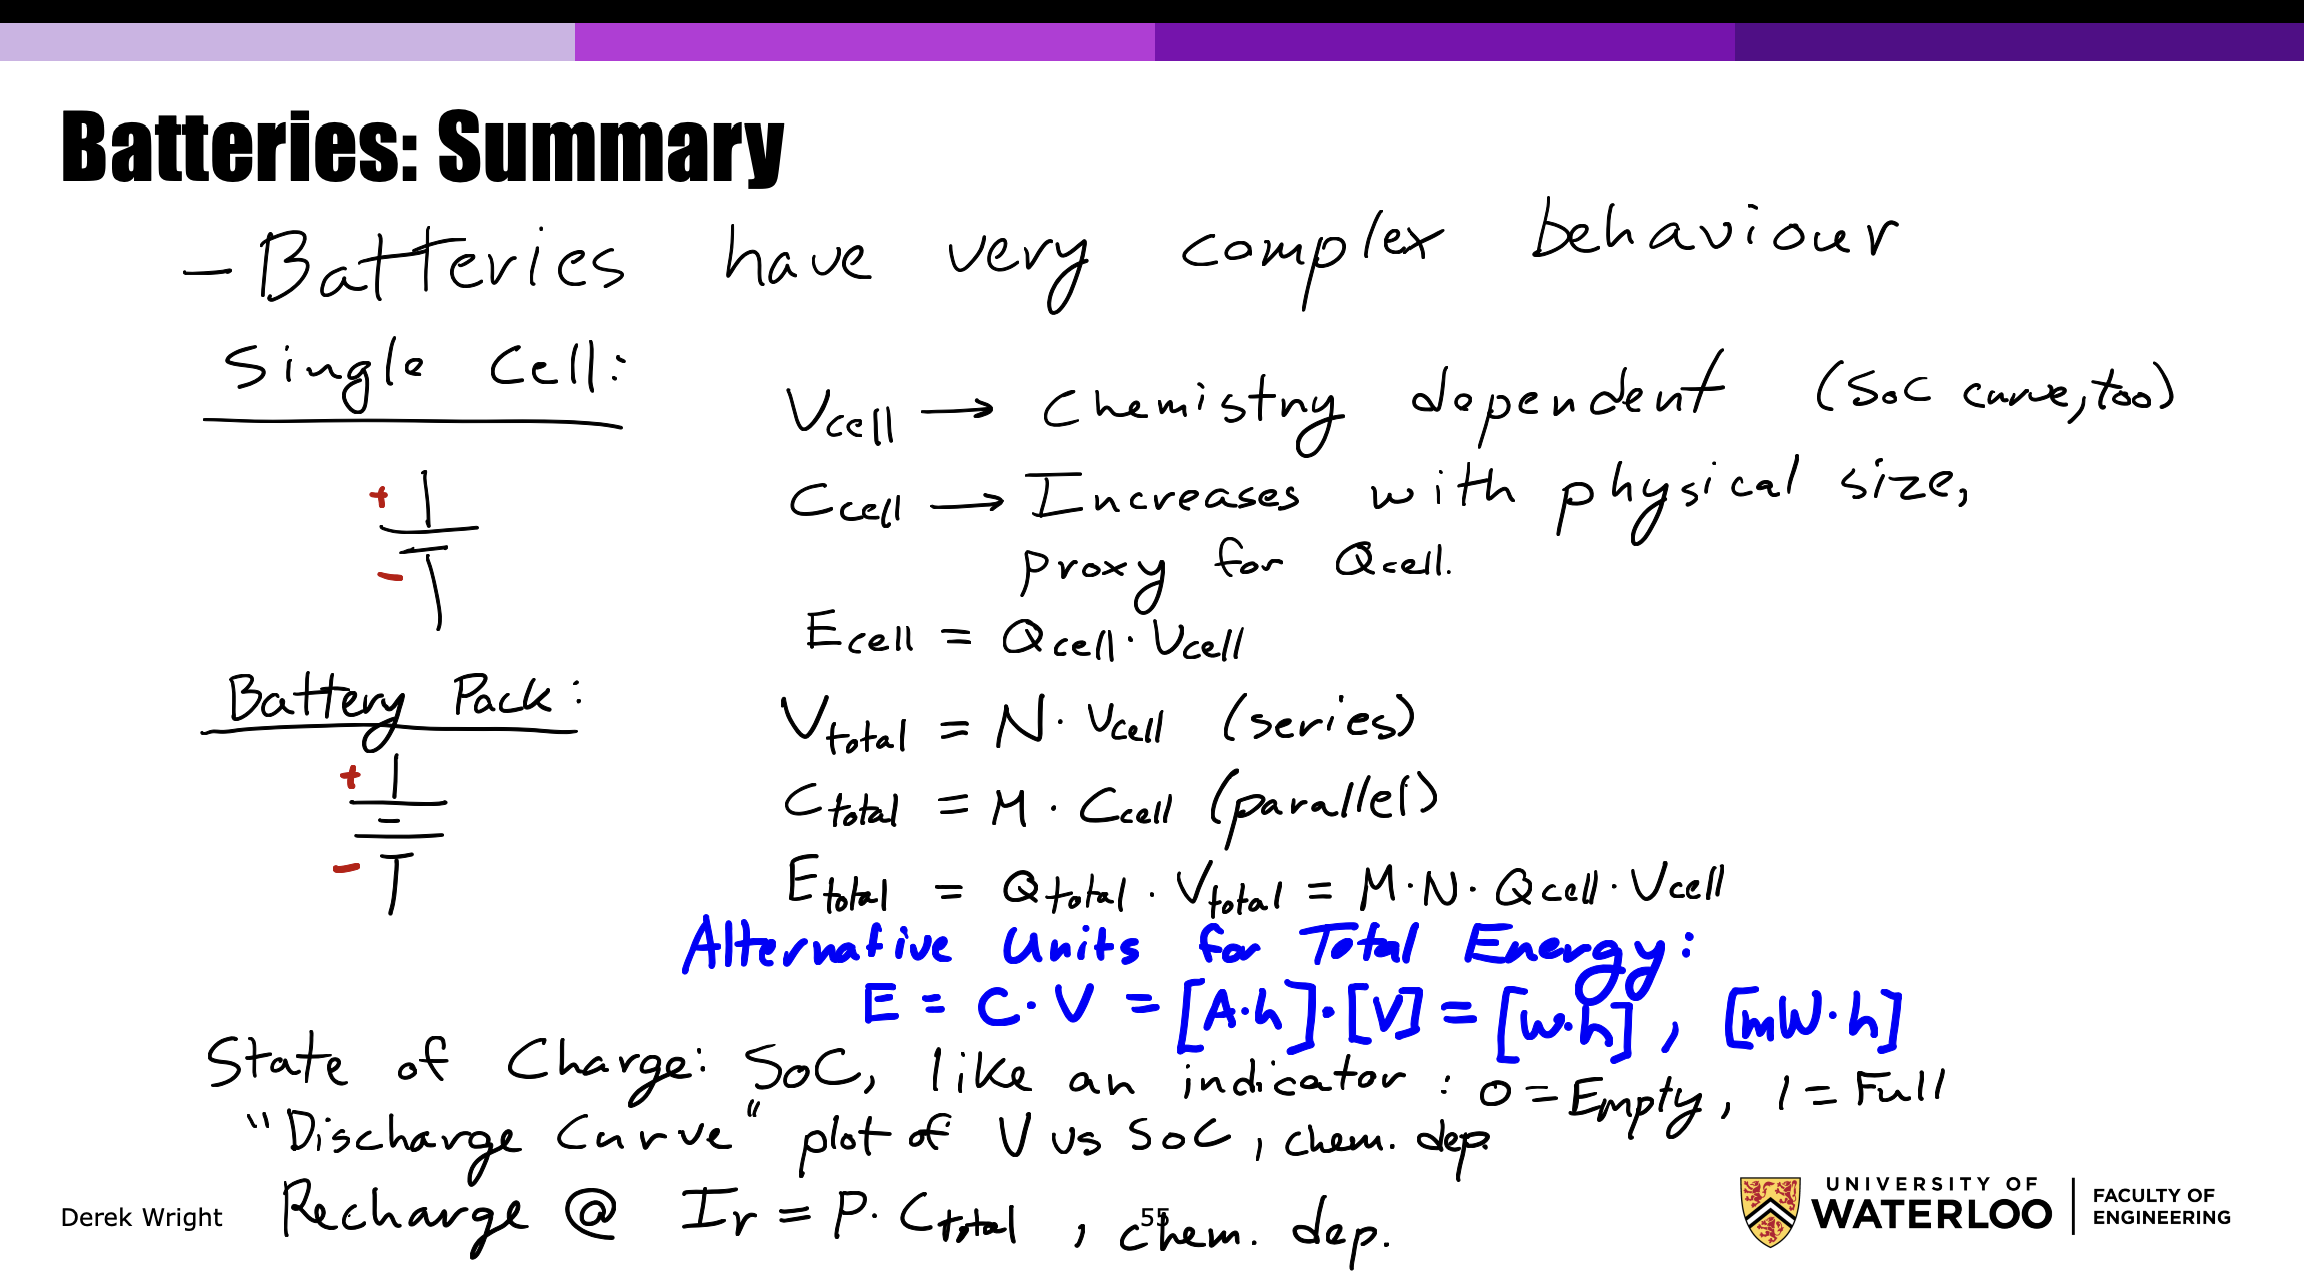 Batteries: Summary
- Batteries have very complex behaviour
Single Cell:
Vcell → Chemistry dependent (SoC curve, too)
Ccell → Increases with physical size,
proxy for Qcell.
Ecell = Qcell · Vcell
+
-
Battery Pack:
Vtotal = N · Vcell (series)
Ctotal = M · Ccell (parallel)
Etotal = Qtotal · Vtotal = M · N · Qcell · Vcell
+
-
Alternative Units for Total Energy:
E = C · V = [A·h] · [V] = [W·h], [mW·h]
State of Charge: SoC, like an indicator: 0 = Empty, 1 = Full
"Discharge Curve" plot of V vs SoC, chem. dep.
Recharge @ Ir = P · Ctotal, chem. dep.
Derek Wright
55
UNIVERSITY OF
WATERLOO
FACULTY OF
ENGINEERING